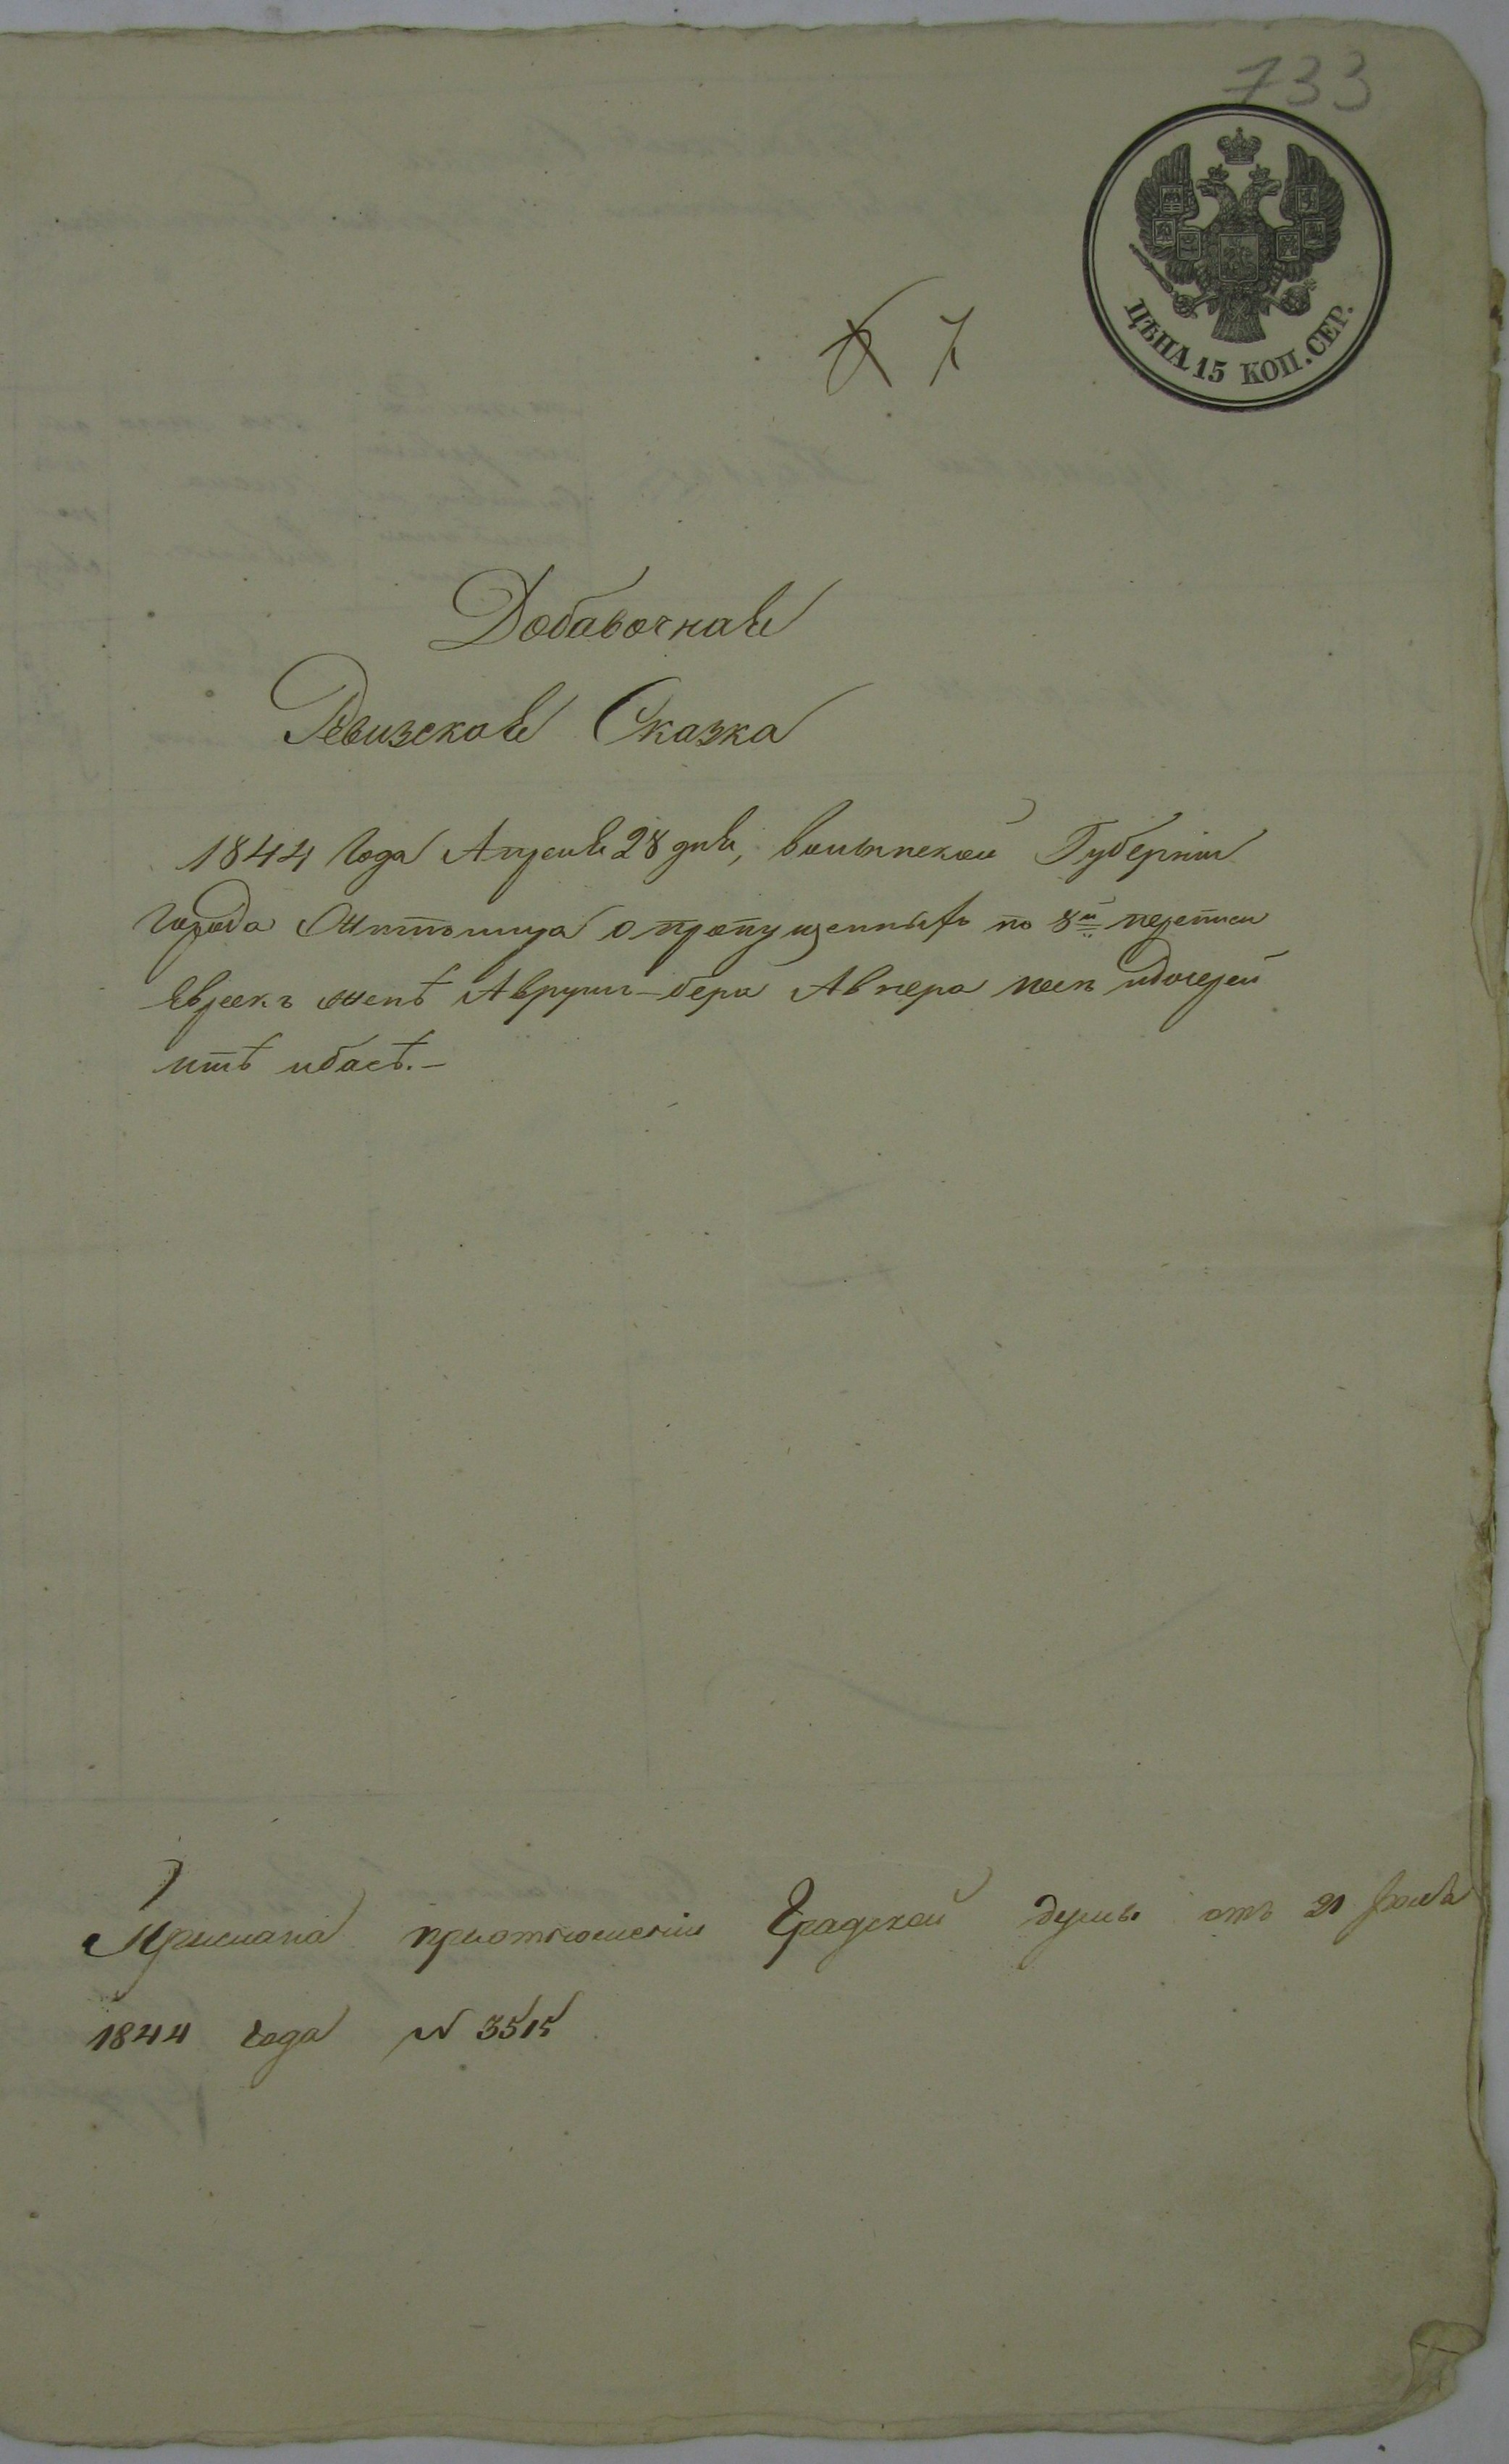 733
ЦѢНА 15 КОП. СЕР.
7
Добавочная
Ревизская Сказка
1844 Года Апреля 28 дня, волынской Губерніи
Города Житомира о пропущенныхъ по 8й переписи
Евреекъ женѣ Аврум-бера Авнера и дочерей
итѣ ибасѣ.-
Прислана приотношеніи Градской думы отъ 21 Июля
1844 года N 3515